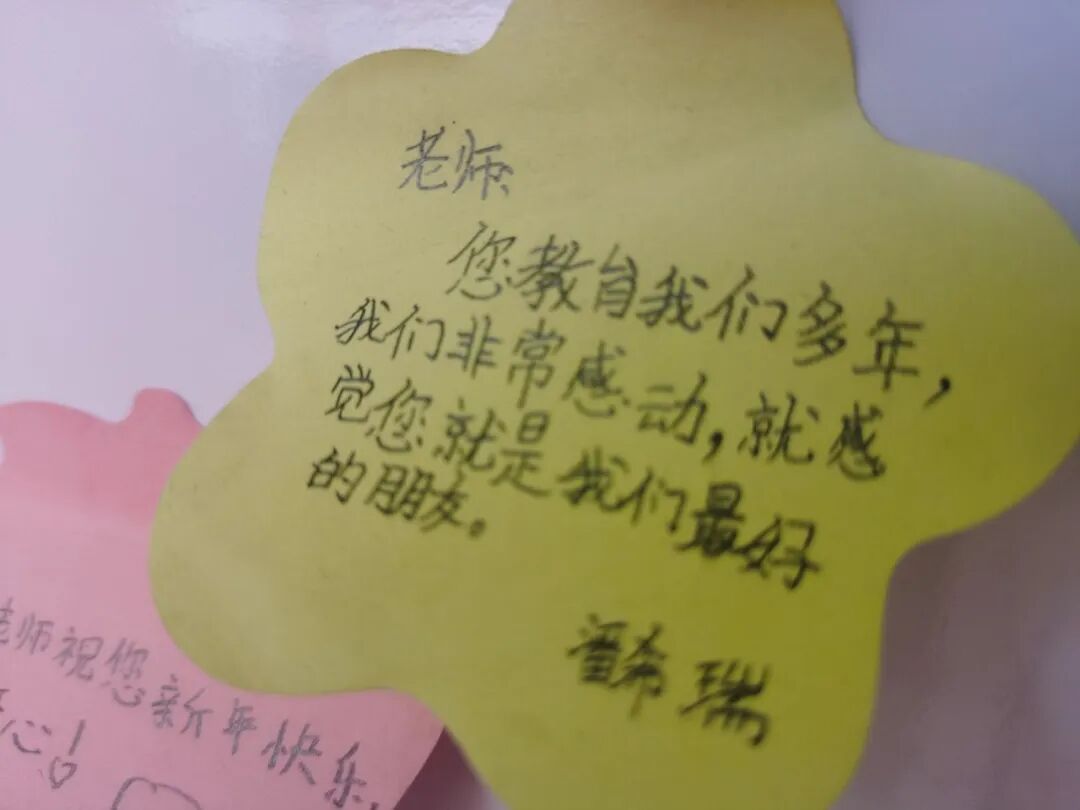 老师
您教育我们多年，
我们非常感动，就感
觉您就是我们最好
的朋友。
希瑞
老师祝您新年快乐，
心！